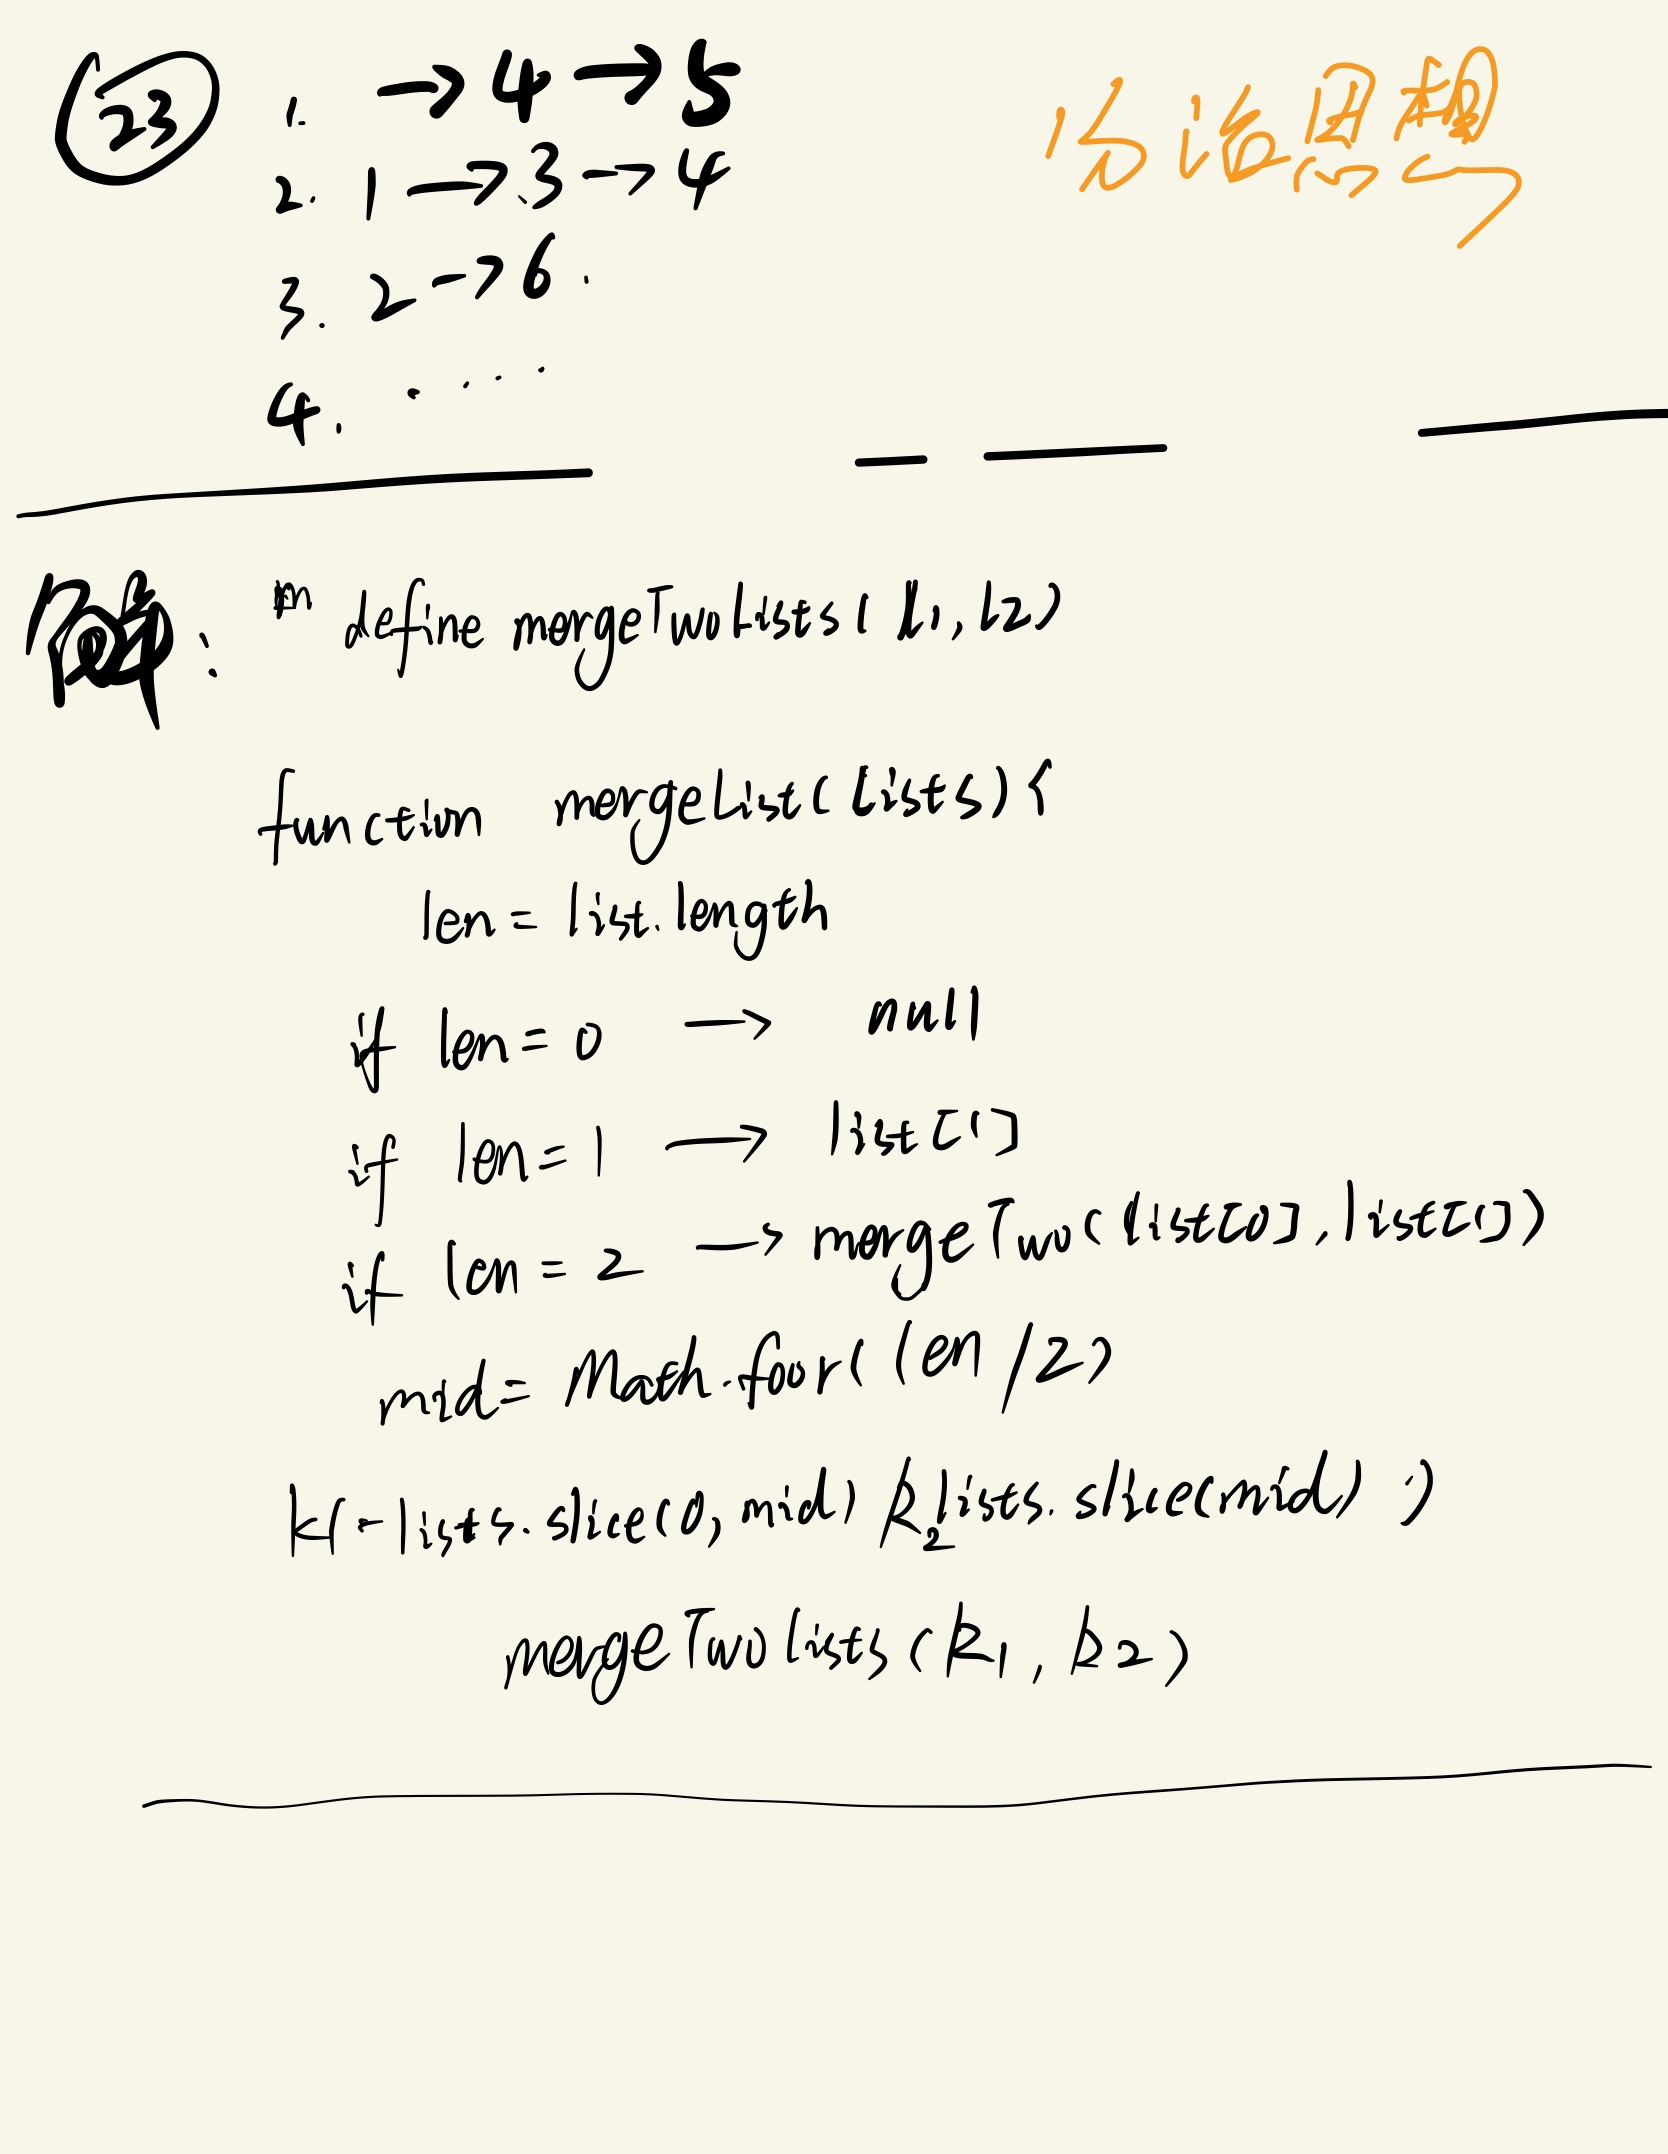 23
1. → 4 → 5
分治思想
2. 1 → 3 → 4
3. 2 → 6 .
4. . . . .
解: define mergeTwoLists(l1, l2)
function mergeList(Lists){
len = list.length
if len = 0 → null
if len = 1 → list[1]
if len = 2 → mergeTwo(list[0], list[1])
mid = Math.foor(len/2)
k1 = lists.slice(0, mid) k2 lists.slice(mid) )
mergeTwoLists(k1, k2)